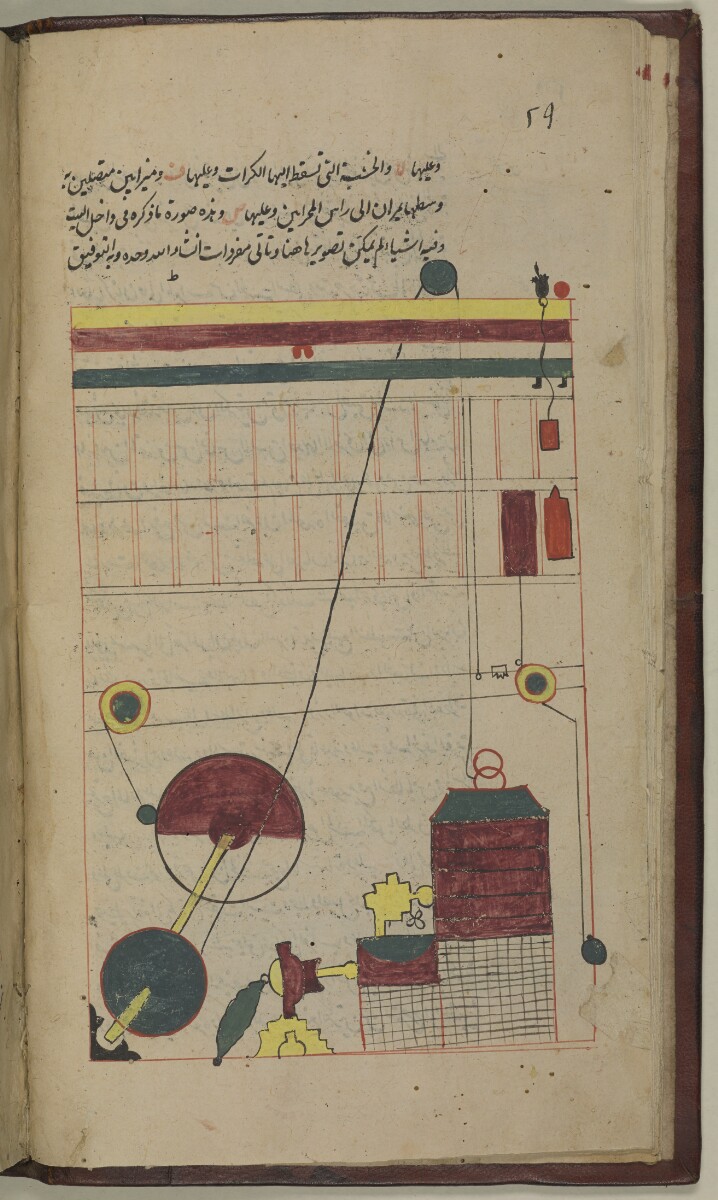 ٢٩
وعليها لا والخشبة التي تسقط اليها الكرات وعليها ف وميزابين متصلين به
وسطها يمران الى راس المحرابين وعليها ص وهذه صورة ما ذكره في داخل البيت
وفيه اشيا لم يمكن تصويرها هنا وتاتي مفردات ان شاء الله وحده وبه التوفيق
ط